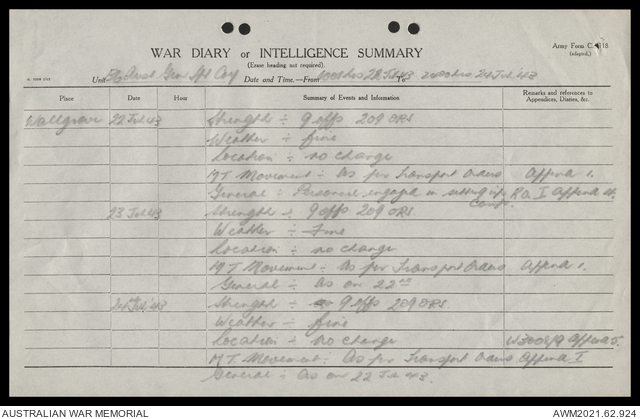 WAR DIARY or INTELLIGENCE SUMMARY
Army Form C. 118
(Erase heading not required).
Unit Aust Gen Coy Date and Time.—From hrs 22 Jul 43 To 2400 hrs 24 Jul '43
Place Date Hour Summary of Events and Information Remarks and references to Appendices, Diaries, &c.
Wallgrove 22 Jul 43 Strength ÷ 9 offs 209 ORS
Weather ÷ fine
Location ÷ no change
MT Movement ÷ As per Transport Appendix 1.
General ÷ Personnel engaged in setting up camp. R.O. I
23 Jul 43 Strength ÷ 9 offs 209 ORS
Weather ÷ Fine
Location ÷ no change
MT Movement ÷ As per Transport Appendix 1.
General ÷ As on 22nd
24 Jul '43 Strength ÷ 9 offs 209 ORS
Weather ÷ fine
Location ÷ no change
MT Movement ÷ As per Transport Appendix I
General ÷ As on 22 Jul 43.
AUSTRALIAN WAR MEMORIAL
AWM2021.62.924